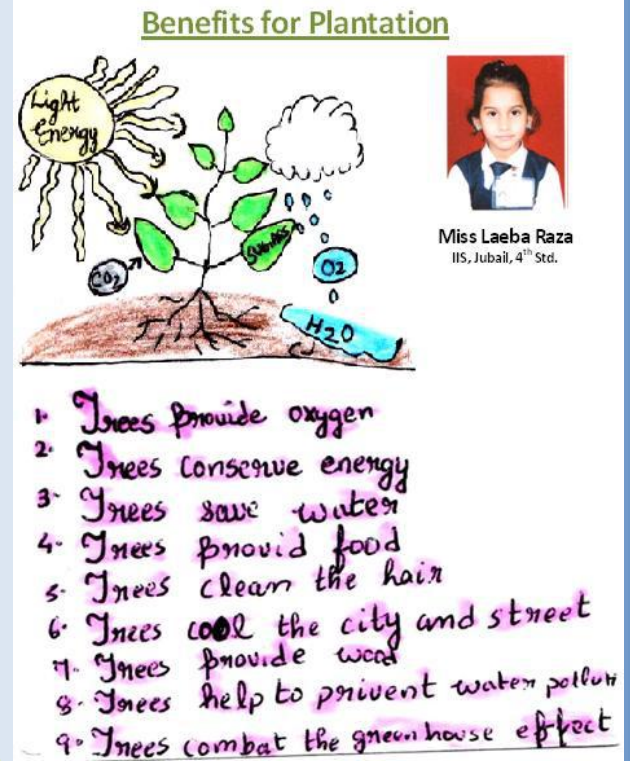 Benefits for Plantation
Light
Energy
Miss Laeba Raza
IIS, Jubail, 4th Std.
SUGARS
CO2
O2
H2O
1. Trees provide oxygen
2. Trees conserve energy
3. Trees save water
4. Trees provid food
5. Trees clean the hair
6. Trees cool the city and street
7. Trees provide wood
8. Trees help to privent water polluti
9. Trees combat the greenhouse effect